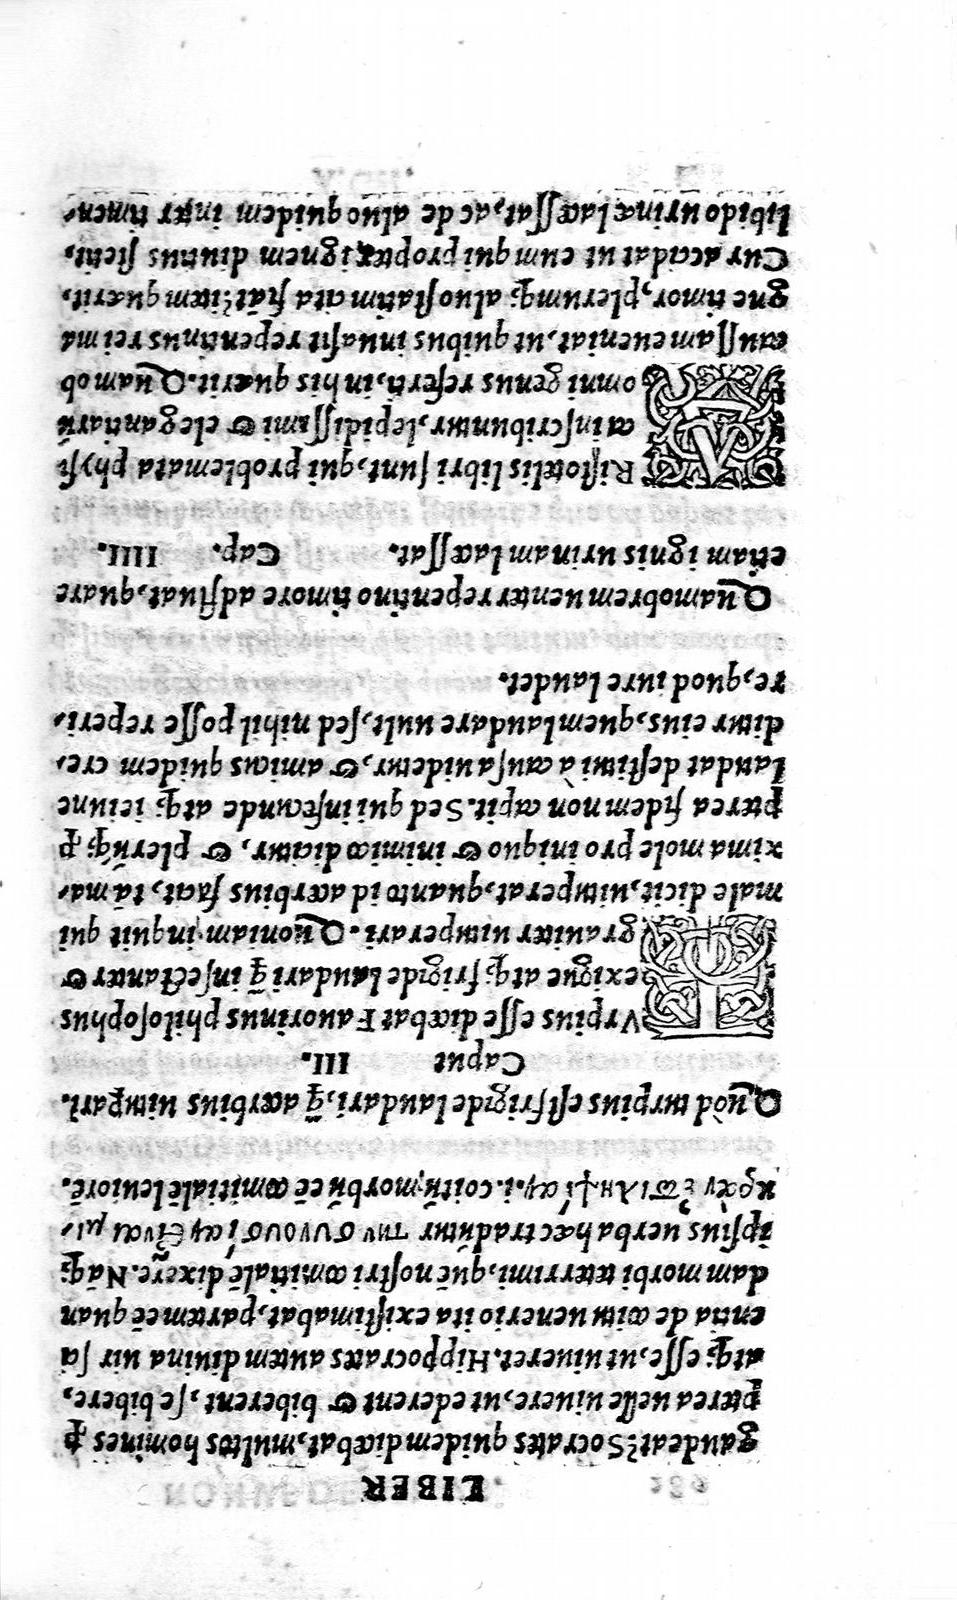 LIBER
gaudeat? Socrates quidem dicebat, multos homines ꝓ
pterea uelle uiuere, ut ederent & biberent, se bibere,
atq; esse, ut uiueret. Hippocrates autem diuina uir sci
entia de coitu uenerio ita existimabat, partem eē quan
dam morbi teterrimi, quē nostri comitialē dixerūt. Nāq;
ipsius uerba hæc traduntur τὴν συνουσίαν εἶναι μι-
κρὰν ἐπιληψίαν .i. coitū, morbū eē comitiali leuiorē.
Quòd turpius est frigide laudari, q̄ acerbius uituꝑari.
Caput III.
TVrpius esse dicebat Fauorinus philosophus
exigue atq; frigide laudari q̄ insectanter &
grauiter uituperari. Quoniam inquit qui
male dicit, uituperat, quanto id acerbius facit, tā ma-
xima mole pro iniquo & inimico dicitur, & plerūq; ꝓ
pterea fidem non capit. Sed qui infœcunde atq; ieiune
laudat destitui à causa uidetur, & amicus quidem cre-
ditur eius, quem laudare uult, sed nihil posse reperi-
re, quod iure laudet.
Quamobrem uenter repentino timore adfluat, quare
etiam ignis urinam lacessat. Cap. IIII.
ARistotelis libri sunt, qui problemata physi
ca inscribuntur, lepidissimi & elegantiarū
omni genus referti, in his quærit. Quamob
caussam eueniat, ut quibus inuasit repentinus rei ma
gne timor, plerunq; aluo statim cita fiāt? item quærit,
Cur accidat ut eum qui propter ignem diutius stetit,
libido urinæ lacessat, ac de aluo quidem inter timen-